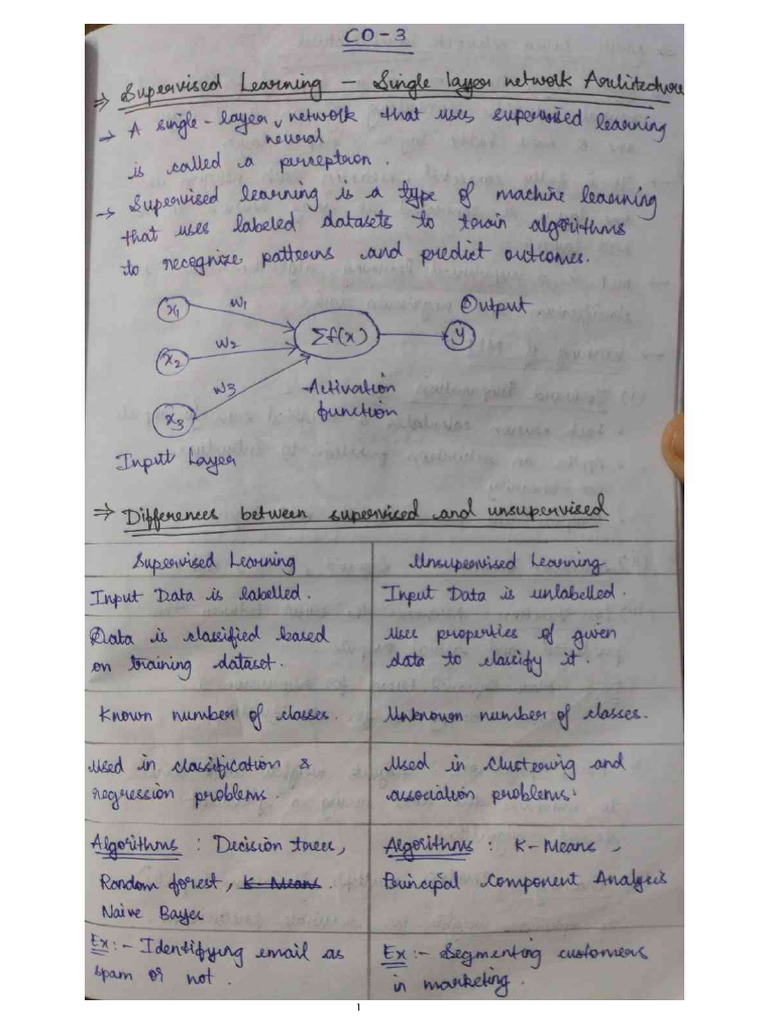 CO-3
⇒ Supervised Learning - Single layer network Architecture
→ A single-layer neural network that uses supervised learning
is called a perceptron.
→ Supervised learning is a type of machine learning
that uses labeled datasets to train algorithms
to recognize patterns and predict outcomes.
x1 w1 Output
Σf(x) y
x2 w2
w3 Activation
function
x3
Input Layer
⇒ Differences between supervised and unsupervised
Supervised Learning Unsupervised Learning
Input Data is labelled. Input Data is unlabelled.
Data is classified based Uses properties of given
on training dataset. data to classify it.
Known number of classes. Unknown number of classes.
Used in classification & Used in clustering and
regression problems. association problems.
Algorithms : Decision tree, Algorithms : K-Means,
Random forest, K-Means Principal Component Analysis
Naive Bayes
Ex:- Identifying email as Ex:- Segmenting customers
spam or not. in marketing.
1